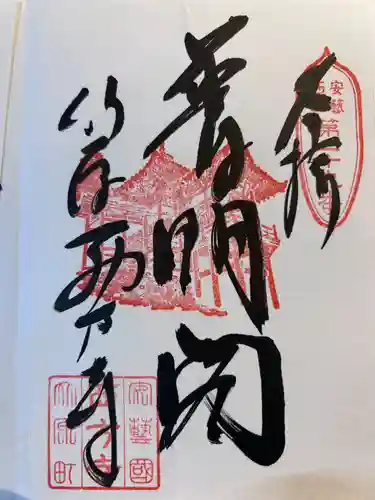 安藝
第
奉拝
普明閣
竹原西方寺
安藝國
西方寺
竹原町